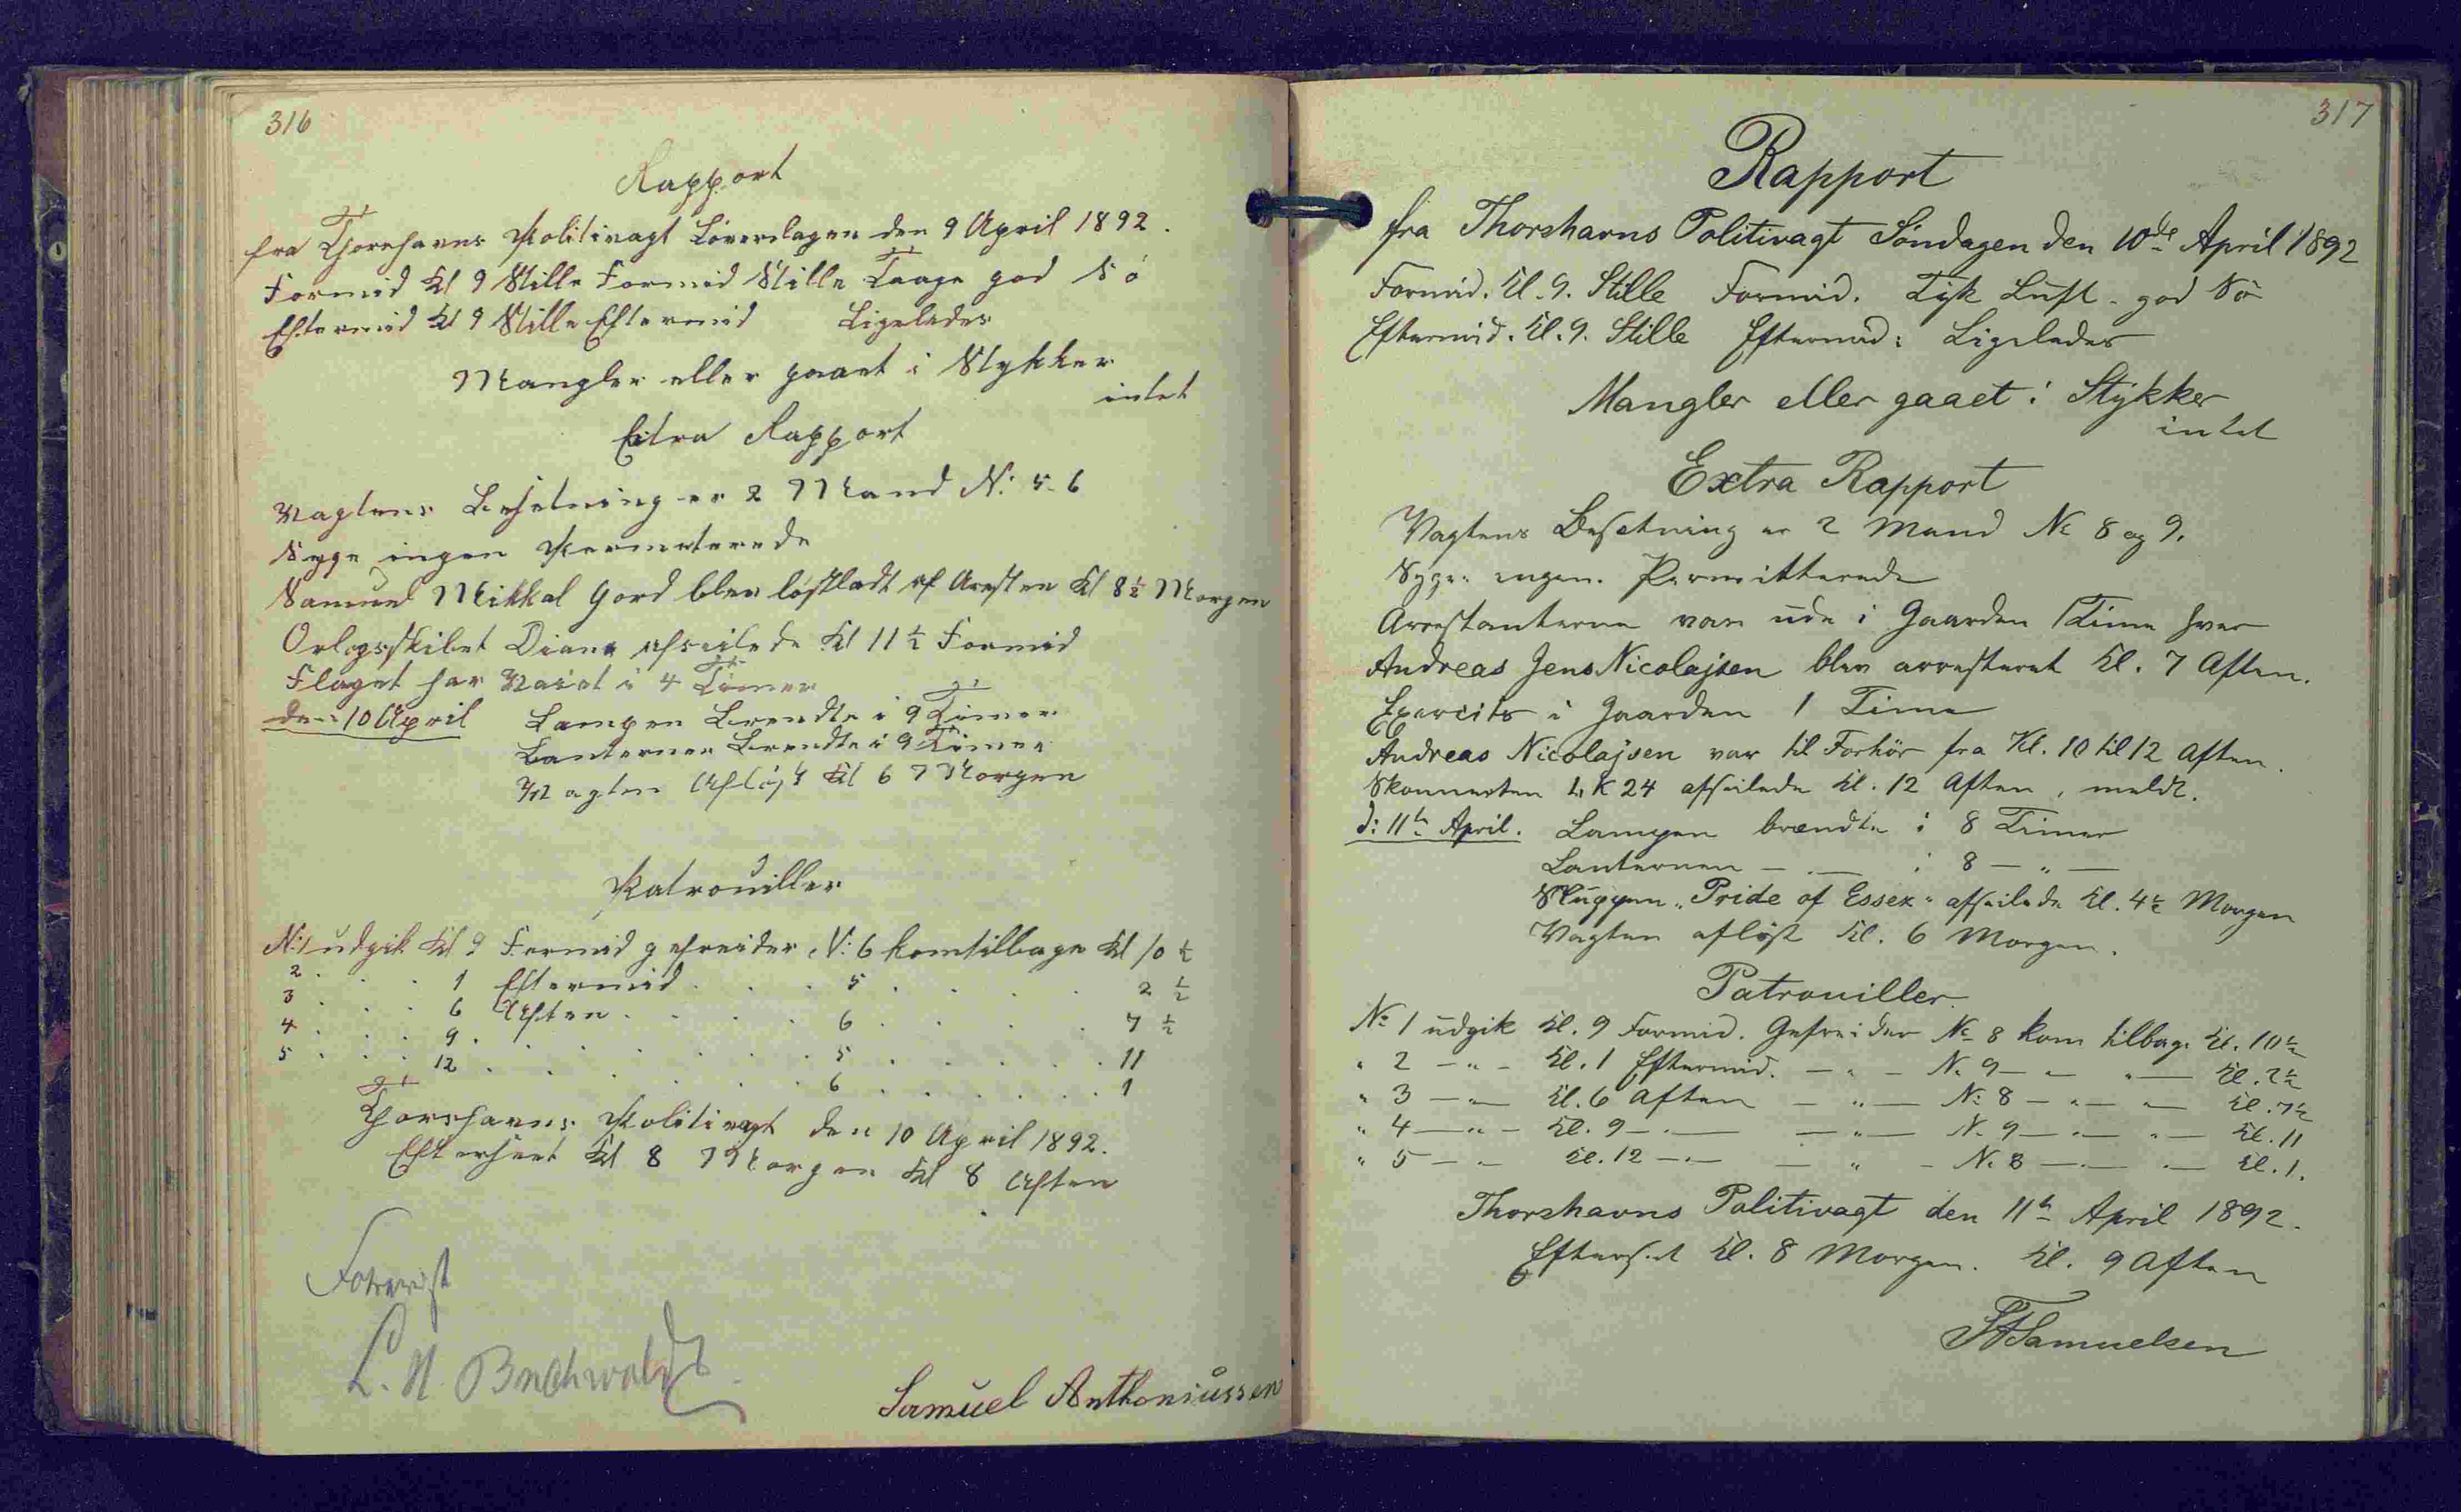 316
Rapport
fra Thorshavns Politivagt Löverdagen den 9 April 1892.
Formid Kl 9 Stille Formid Stille Taage god Sö
Eftermid Kl 9 Stille Eftermid Ligeledes
Mangler eller gaaet i Stykker
intet
Extra Rapport
Vagtens Besetning er 2 Mand N: 5-6
Syge ingen Permeterede
Samuel Mikkal Gord blev löstladt af Aresten Kl 8 ½ Morgen
Orlogsskibet Diana afseilede Kl 11 ½ Formid
Flaget har Vaiet i 4 Timer
den 10 April Lampen Brendte i 9 Timer
Lanternen Brendte i 9 Timer
Vagten Aflöst Kl 6 Morgen
Patrouiller
N: 1 udgik Kl 9 Formid gefreider N: 6 kom tilbage Kl 10 ½
2 . . . 1 Eftermid . . . 5 . . . . 2 ½
3 . . . 6 Aften . . . . 6 . . . . 7 ½
4 . . . 9 . . . . . . . 5 . . . . . 11
5 . . . 12 . . . . . . . 6 . . . . . . 1
Thorshavns Politivagt den 10 April 1892.
Efterseet Kl 8 Morgen Kl 8 Aften
Forevist
L. H. Buchwaldt
Samuel Anthoniussen
317
Rapport
fra Thorshavns Politivagt Söndagen den 10de April 1892
Formid. Kl. 9. Stille Formid. Tyk Luft - god Sö
Eftermid. Kl. 9. Stille Eftermid: Ligeledes
Mangler eller gaaet i Stykker
intet
Extra Rapport
Vagtens Besetning er 2 Mand No 8 og 9.
Syge: ingen. Permitterede
Arrestanterne var ude i Gaarden 1 Time hver
Andreas Jens Nicolajsen blev arresteret Kl. 7 Aften.
Exercits i Gaarden 1 Time
Andreas Nicolajsen var til Forhör fra Kl. 10 til 12 Aften.
Skonnerten L K 24 afseilede Kl. 12 Aften, meldt.
d: 11te April. Lampen brændte i 8 Timer
Lanternen — . — i 8 — " —
Sluppen „Pride of Essex" afseilede Kl. 4 ½ Morgen
Vagten aflöst Kl. 6 Morgen.
Patrouiller.
No 1 udgik Kl. 9 Formid. Gefreider No 8 kom tilbage Kl. 10 ½
" 2 — " — Kl. 1 Eftermid. — " — No 9 — " — " — Kl. 2 ½
" 3 — " — Kl. 6 Aften — " — No 8 — " — " — Kl. 7 ½
" 4 — " — Kl. 9 — " — — " — No 9 — " — " — Kl. 11
" 5 — " — Kl. 12 — " — — " — No 8 — " — " — Kl. 1.
Thorshavns Politivagt den 11te April 1892.
Efterset Kl. 8 Morgen. Kl. 9 Aften
Samuelsen